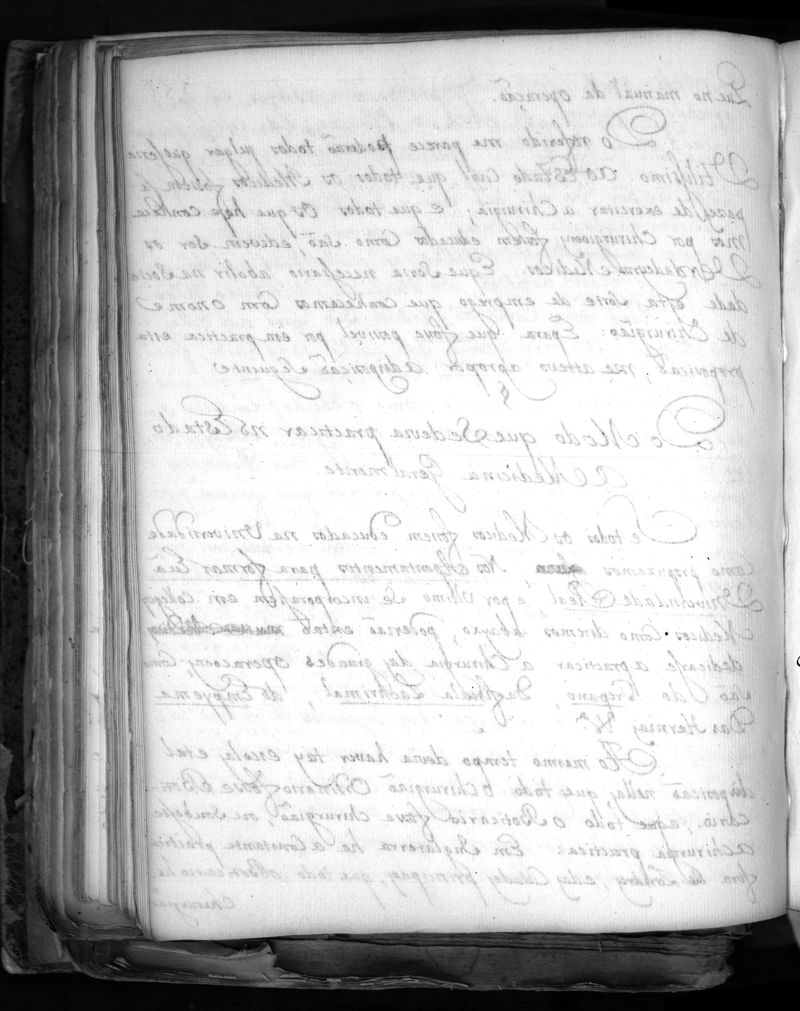 Que no manual da operação.
Do referido me parece poderão todos julgar que seria
Utilissimo ao Estado Civil que todos os Medicos fossem ca
pazes de exercitar a Chirurgia; e que todos os que hoje conhece
mos por Chirurgioens fossem educados como são, e devem ser os
Verdadeyros Medicos. E que seria necessario abolir na Socie
dade esta sorte de emprego que conhecemos com o nome
de Chirurgião: E para que fosse pusivel por em practica esta
propozicaõ, me attrevo apropor a dispozicaõ seguinte
§
Do Modo que Se devia practicar no Estado
A Medicina geralmente
Se todos os Medicos forem educados na Universidade
Como propuzemos Nos Apontamentos para formar hũa
Universidade Real, e por ultimo se incorporassem em Colegios
Medicos como diremos abayxo, poderião estes
dedicarse a practicar a Chirurgia das grandes operaçoens, como
são do Trepano, da fistula Lachrimal, do Empyema
Das Hernias, &ª
Ao mesmo tempo devia haver tay escola, e tal
disposicaõ nella, que todo o Chirurgião Ordinario fosse Boti-
cario, e que todo o Boticario fosse chirurgião, ou soubesse
a chirurgia practica: Em Inglaterra he a Constante practica
fora de Londres, e das Cidades principaes, que todo o Boticario he
Chirurgião